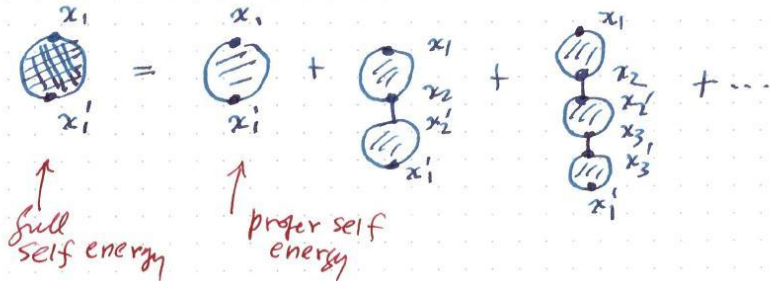 x₁ = x₁ + x₁ + x₁ + ...
x₂ x₂
x₁' x₁' x₂' x₂'
x₁' x₃
x₃'
x₁'
full
self energy
proper self
energy